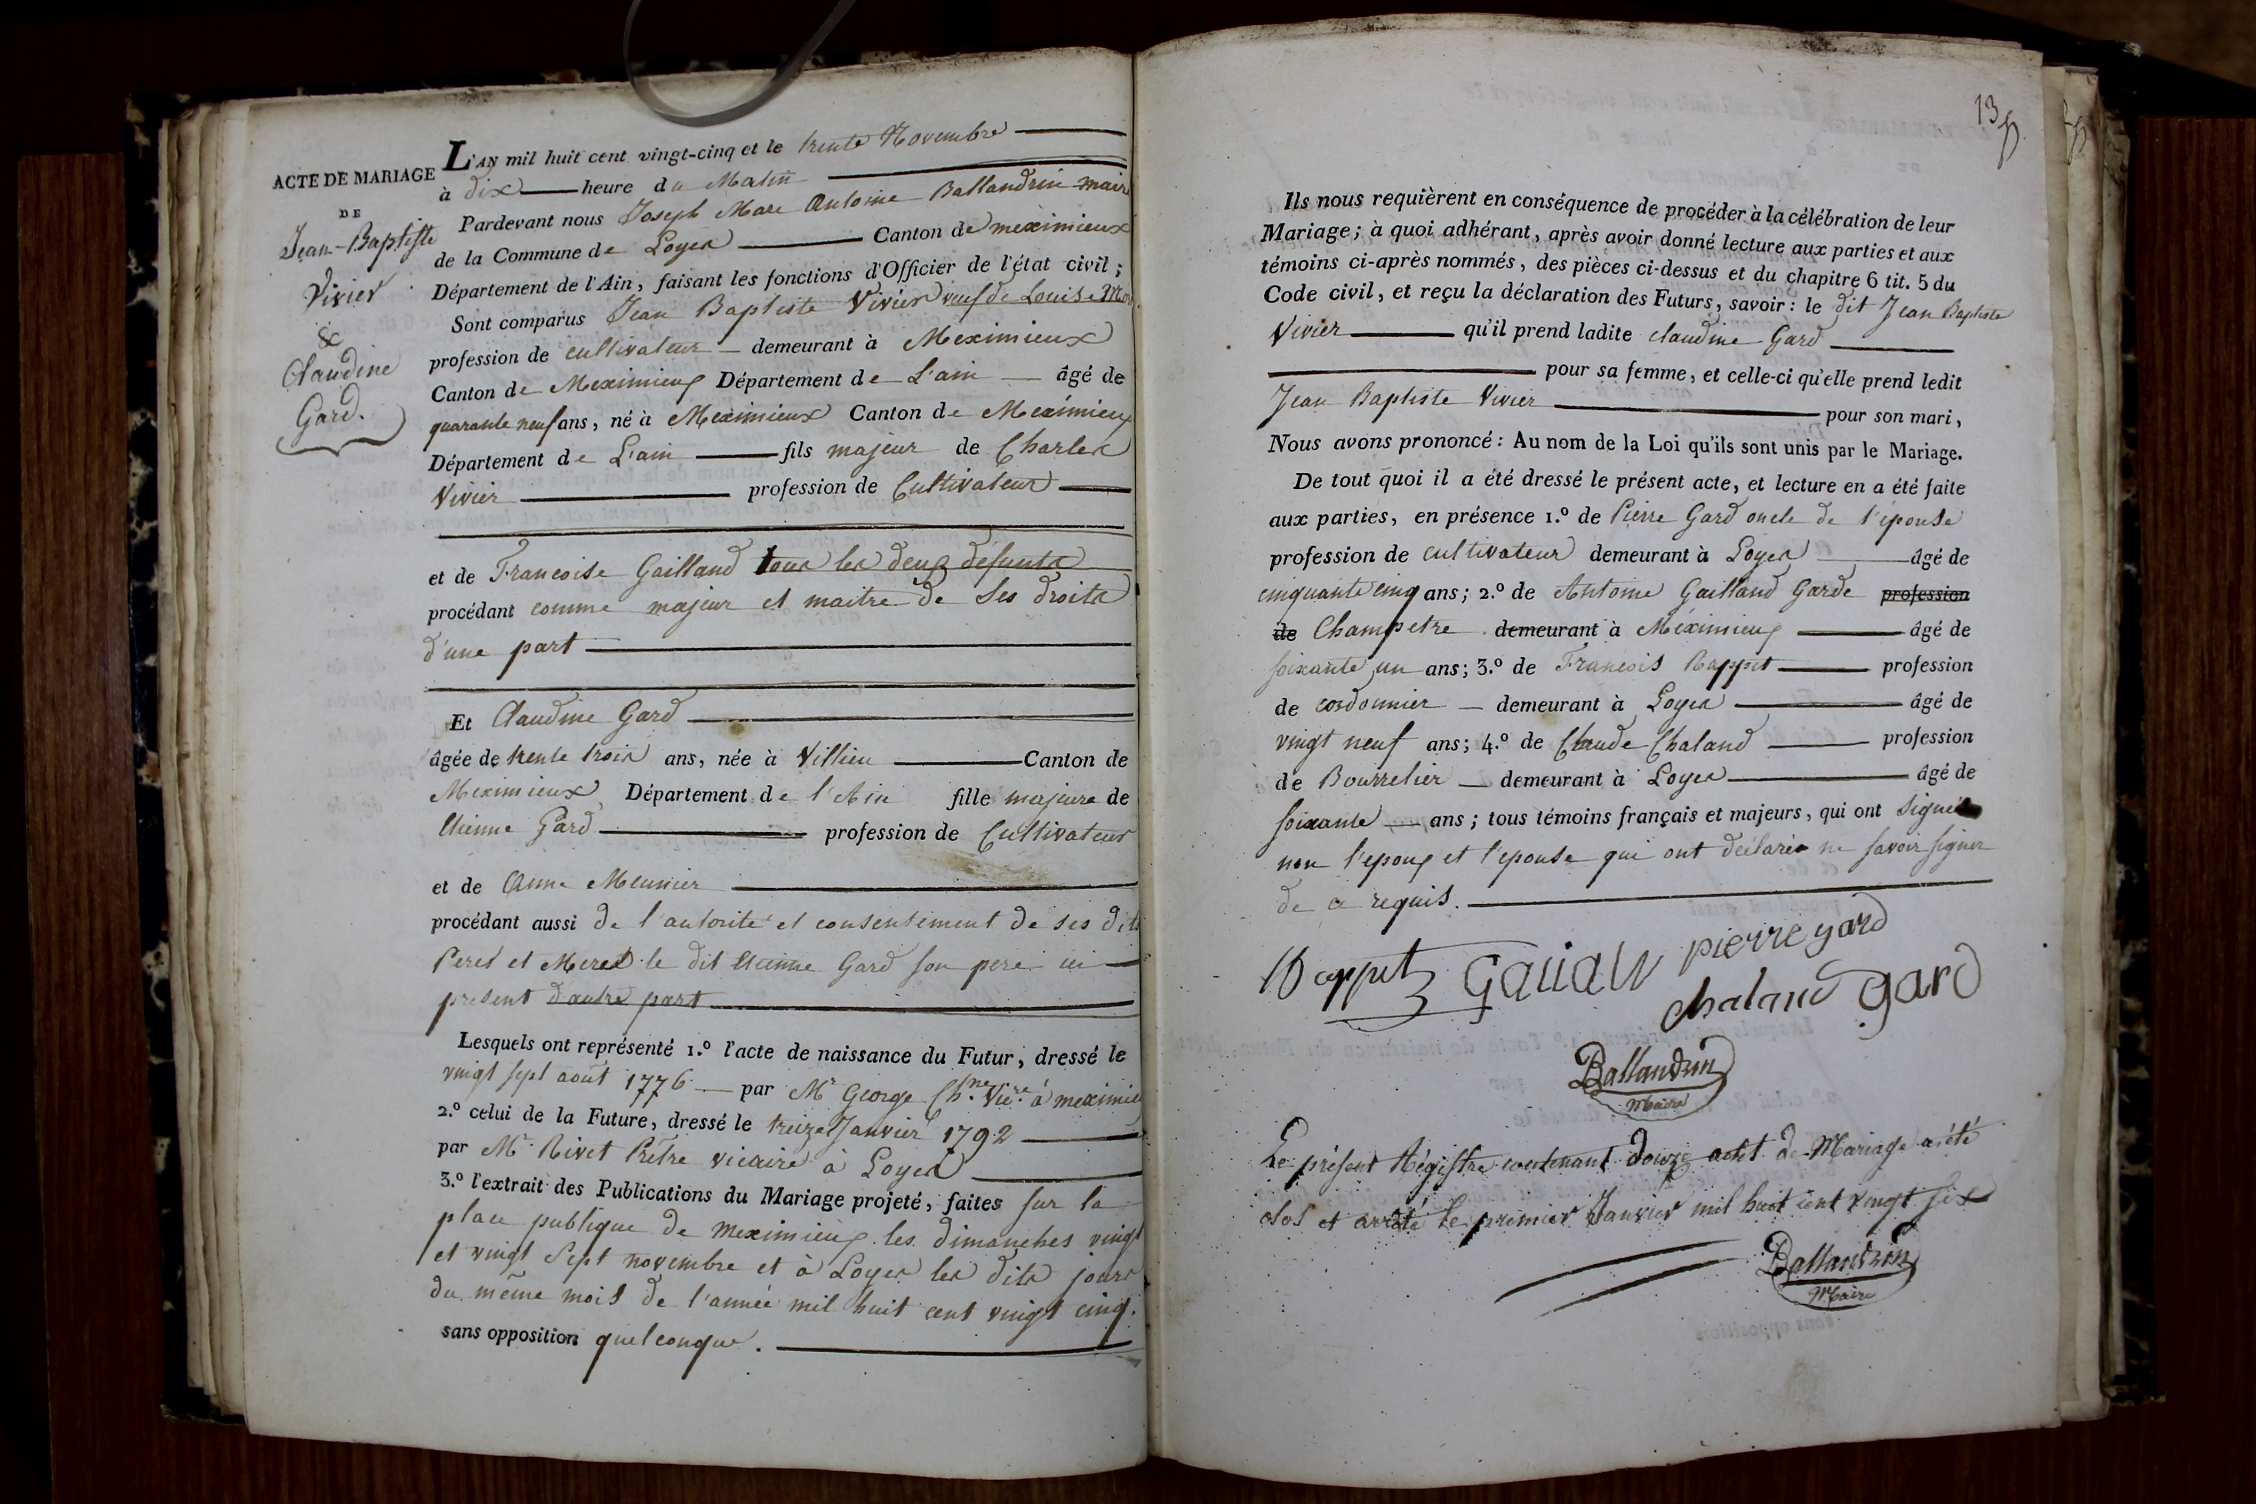 ACTE DE MARIAGE
DE
Jean-Baptiste
Vivier
&
Claudine
Gard.
L'AN mil huit cent vingt-cinq et le trente Novembre
à dix heure du Matin
Pardevant nous Joseph Marc Antoine Ballandrin maire
de la Commune de Loyes Canton de meximieux
Département de l'Ain, faisant les fonctions d'Officier de l'état civil;
Sont comparus Jean Baptiste Vivier veuf de Louise
profession de cultivateur demeurant à Meximieux
Canton de Meximieux Département de L'ain âgé de
quarante neuf ans, né à Meximieux Canton de Meximieux
Département de L'ain fils majeur de Charles
Vivier profession de Cultivateur
et de Francoise Gailland tous les deux défunts
procédant comme majeur et maitre de ses droits
d'une part
Et Claudine Gard
âgée de trente trois ans, née à Villieu Canton de
Meximieux Département de l'Ain fille majeure de
Etienne Gard profession de Cultivateur
et de Anne Meunier
procédant aussi de l'autorité et consentement de ses dits
Peres et Meres le dit Etienne Gard son pere ici
present d'autre part
Lesquels ont représenté 1.º l'acte de naissance du Futur, dressé le
vingt sept août 1776 par Mr George Chne Vicre à meximieu
2.º celui de la Future, dressé le treize Janvier 1792
par Mr Rivet Prêtre vicaire à Loyes
3.º l'extrait des Publications du Mariage projeté, faites sur la
place publique de meximieux les dimanches vingt
et vingt Sept novembre et à Loyes les dits jours
du même mois de l'année mil huit cent vingt cinq.
sans opposition quelconque.
13
Ils nous requièrent en conséquence de procéder à la célébration de leur
Mariage; à quoi adhérant, après avoir donné lecture aux parties et aux
témoins ci-après nommés, des pièces ci-dessus et du chapitre 6 tit. 5 du
Code civil, et reçu la déclaration des Futurs, savoir: le dit Jean Baptiste
Vivier qu'il prend ladite claudine Gard
pour sa femme, et celle-ci qu'elle prend ledit
Jean Baptiste Vivier pour son mari,
Nous avons prononcé: Au nom de la Loi qu'ils sont unis par le Mariage.
De tout quoi il a été dressé le présent acte, et lecture en a été faite
aux parties, en présence 1.º de Pierre Gard oncle de l'épouse
profession de cultivateur demeurant à Loyes âgé de
cinquante cinq ans; 2.º de Antoine Gailland Garde profession
de Champetre demeurant à Meximieux âgé de
soixante un ans; 3.º de Francois Rappet profession
de cordonnier demeurant à Loyes âgé de
vingt neuf ans; 4.º de Claude Chaland profession
de Bourrelier demeurant à Loyes âgé de
soixante ans; tous témoins français et majeurs, qui ont signés
non l'epoux et l'epouse qui ont déclarés ne savoir signer
de ce requis.
Rappet Gailand pierre gard
chaland gard
Ballandrin
Maire
Le présent Régistre contenant douze actes de Mariage a été
clos et arrêté le premier Janvier mil huit cent vingt six
Ballandrin
Maire